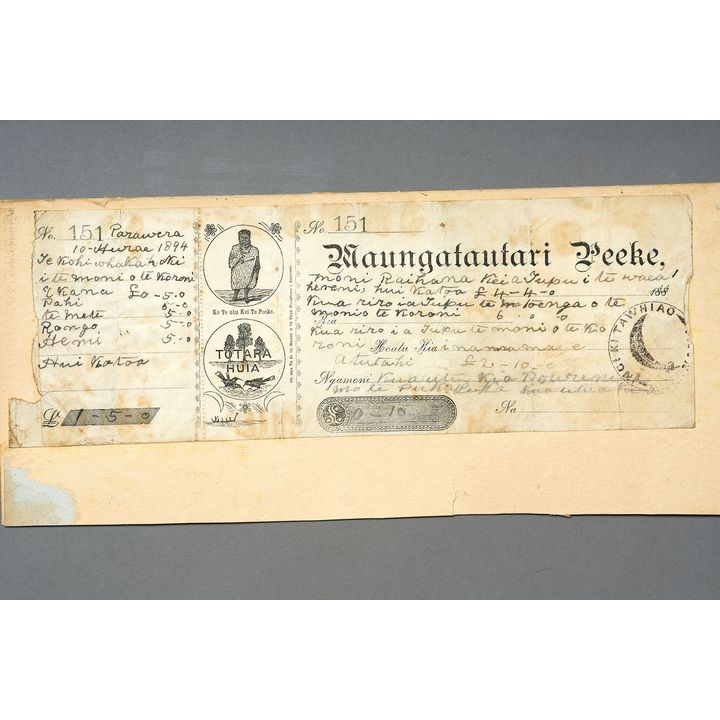 No. 151 Parawera
10 Hurae 1894
Te Kohi whaka
i te moni o te Koroni
£0-5-0
Pahi 5-0
te Mete 5-0
Rongo 5-0
Hemi 5-0
Hui Katoa
£ 1-5-0
Ko Te utu Kei Te Peeke.
TOTARA
HUIA
No. 151
Maungatautari Peeke,
moni Raihana Kei a Tupu i te waea 1
hereni, hui Katoa £4-4-0
188
Kua riro ia Tupu te o te
moni o te Koroni 6 0 0
Kua riro i a Tupu te moni o te Ko
roni Hoatu Kia
Atutahi £ -10-0
Ngamoni Kua utu Kia
mo te
0-10
Na
KI TAWHIAO